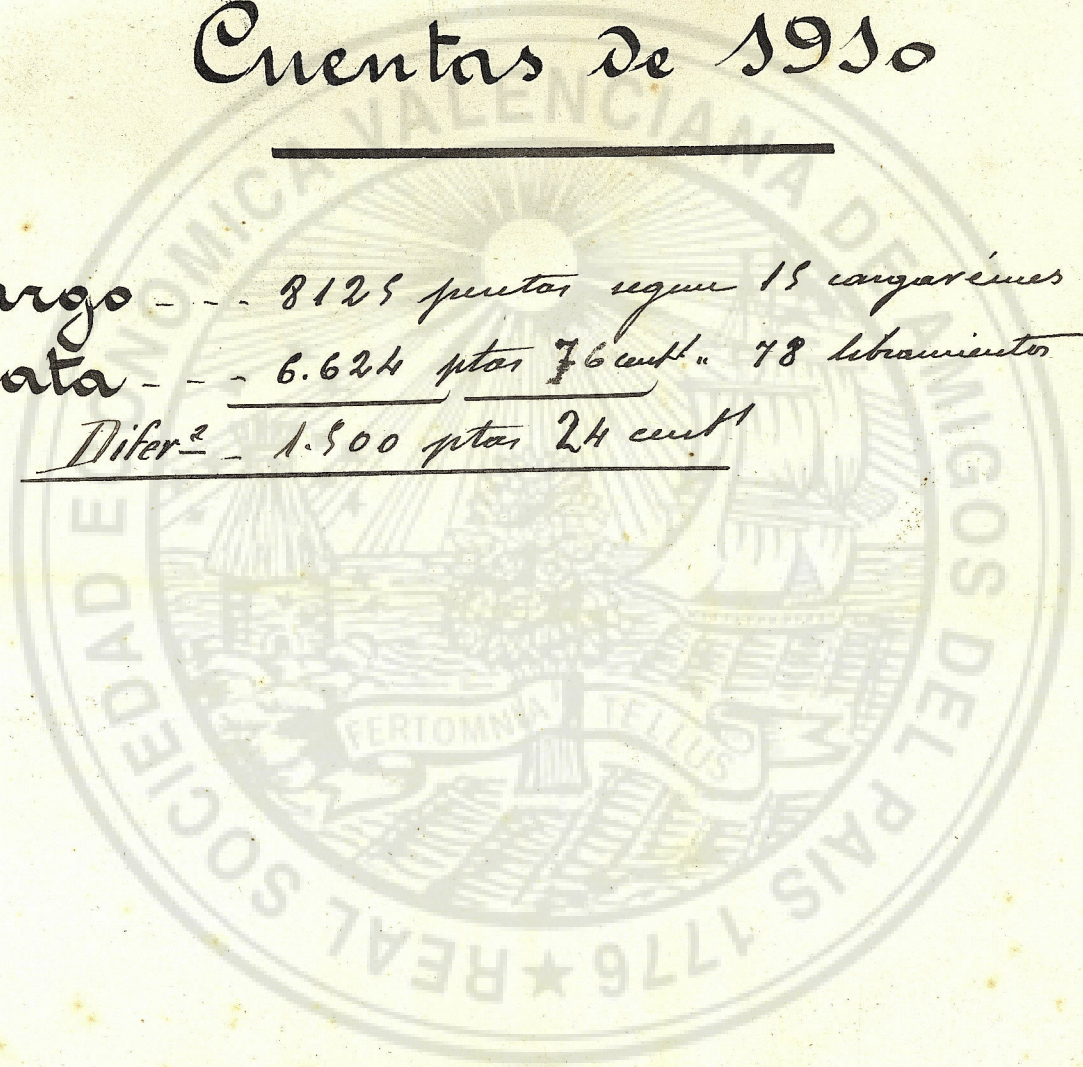 Cuentas de 1910
argo - - - 8125 pesetas segun 15 cargarémes
ata - - - 6.624 ptas 76 cents " 78 libramientos
Difer.ª - 1.500 ptas 24 cents
REAL SOCIEDAD ECONOMICA VALENCIANA DE AMIGOS DEL PAIS 1776
FERT OMNIA TELLUS